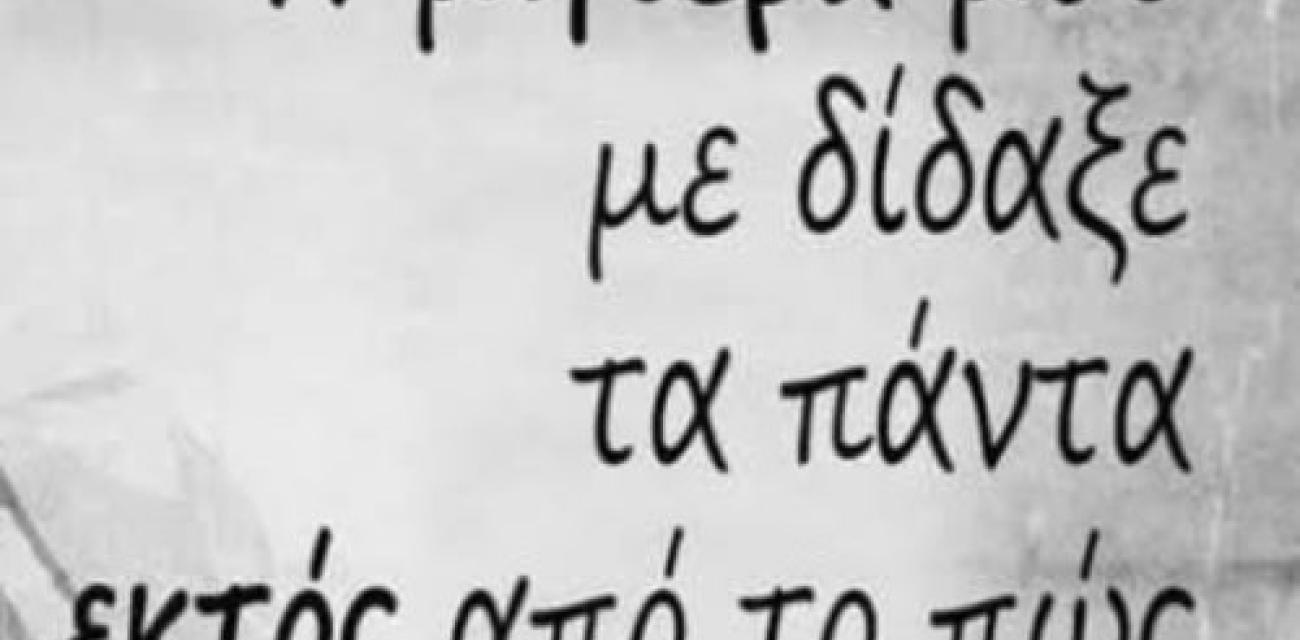 με δίδαξε
τα πάντα
εκτός από το πώς